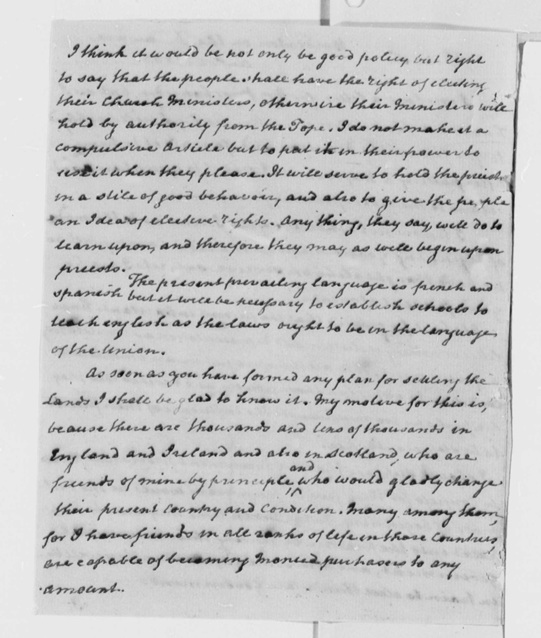 I think it would be not only be good policy but right
to say that the people shall have the right of electing
their Church Ministers, otherwise their Ministers will
hold by authority from the Pope. I do not make it a
compulsive article but to put it in their power to
use it when they please. It will serve to hold the priests
in a stile of good behaviour, and also to give the people
an Idea of elective rights. Anything, they say, will do to
learn upon, and therefore they may as well begin upon
priests.
The present prevailing language is french and
spanish but it will be necessary to establish schools to
teach english as the laws ought to be in the language
of the Union.
As soon as you have formed any plan for settling the
Lands I shall be glad to know it. My motive for this is,
because there are thousands and tens of thousands in
England and Ireland and also in Scotland, who are
friends of mine by principle, and who would gladly change
their present Country and Condition. Many among them,
for I have friends in all ranks of life in those Countries,
are capable of becoming monied purchasers to any
amount.